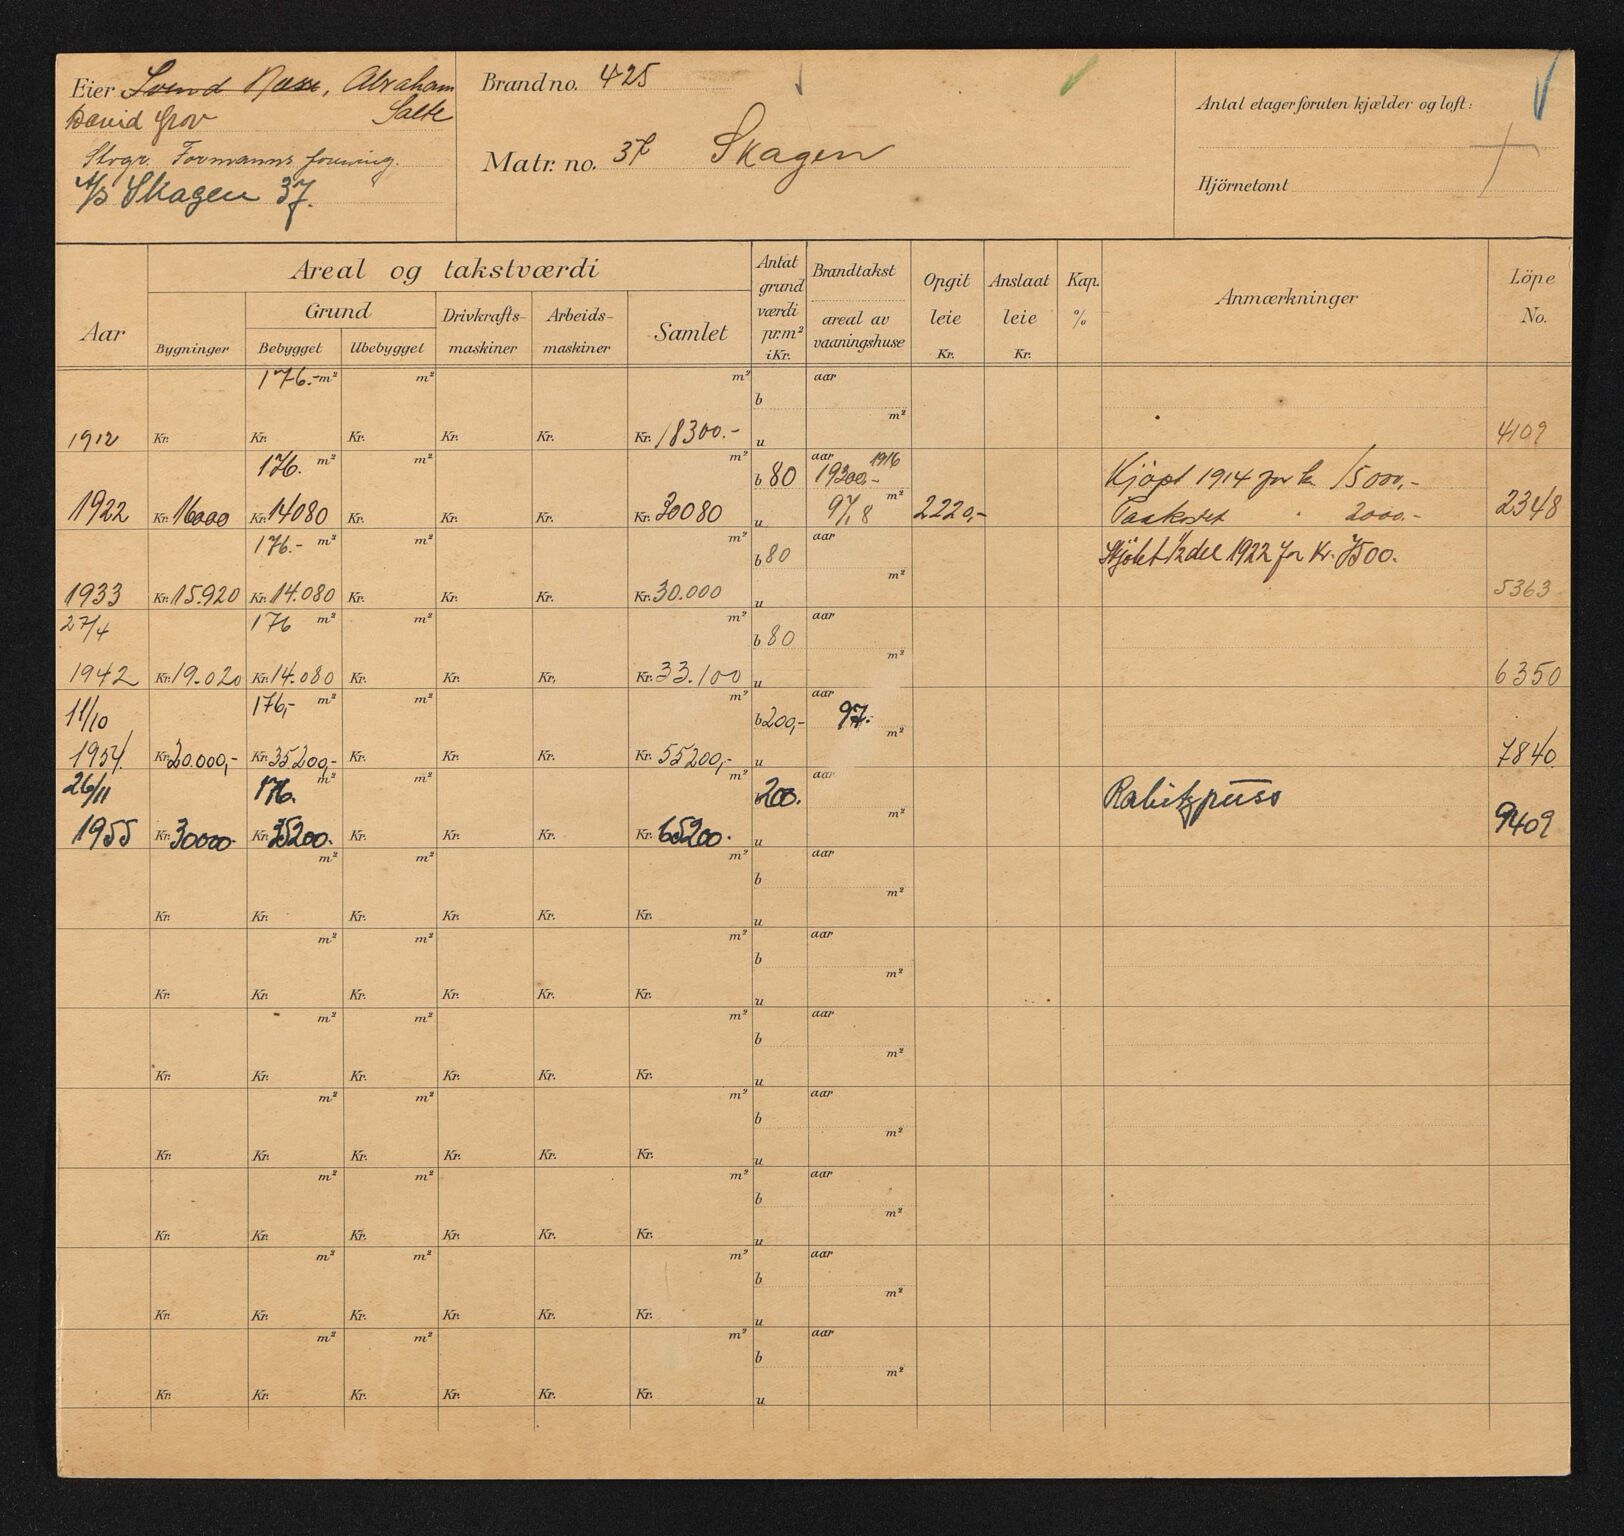 Eier Svend Næss, Abraham
David Grov Salte
Stvgr. Formanns forening.
A/S Skagen 37.
Brand no. 425
Matr. no. 37 Skagen
Antal etager foruten kjælder og loft:
Hjörnetomt
Aar
Areal og takstværdi
Bygninger
Grund
Bebygget Ubebygget
Drivkrafts-maskiner
Arbeids-maskiner
Samlet
Antat grundværdi pr. m² i Kr.
Brandtakst
areal av vaaningshuse
Opgit leie Kr.
Anslaat leie Kr.
Kap. %
Anmærkninger
Löpe No.
176.- m² m² m² b aar m²
1912 Kr. Kr. Kr. Kr. Kr. Kr. 18300.- u 4109
176. m² m² m² b 80 aar 1916 19200,- m² Kjöpt 1914 for kr 15000,-
1922 Kr. 16000 Kr. 14080 Kr. Kr. Kr. Kr. 30080 u 97,8 2220,- Paakostet " 2000.- 2348
176.- m² m² m² b 80 aar m² Skjötet 1/2 del 1922 for Kr. 7500.
1933 Kr. 15.920 Kr. 14.080 Kr. Kr. Kr. Kr. 30.000 u 5363
27/4 176 m² m² m² b 80 aar m²
1942 Kr. 19.020 Kr. 14.080 Kr. Kr. Kr. Kr. 33.100 u 6350
11/10 176,- m² m² m² b 200,- aar 97.- m²
1954. Kr. 20.000,- Kr. 35200,- Kr. Kr. Kr. Kr. 55200,- u 7840.
26/11 176. m² m² m² b 200. aar m² Rabitzpuss
1955 Kr. 30000.- Kr. 35200. Kr. Kr. Kr. Kr. 65200. u 9409
m² m² m² b aar m²
Kr. Kr. Kr. Kr. Kr. Kr. u
m² m² m² b aar m²
Kr. Kr. Kr. Kr. Kr. Kr. u
m² m² m² b aar m²
Kr. Kr. Kr. Kr. Kr. Kr. u
m² m² m² b aar m²
Kr. Kr. Kr. Kr. Kr. Kr. u
m² m² m² b aar m²
Kr. Kr. Kr. Kr. Kr. Kr. u
m² m² m² b aar m²
Kr. Kr. Kr. Kr. Kr. Kr. u
m² m² m² b aar m²
Kr. Kr. Kr. Kr. Kr. Kr. u